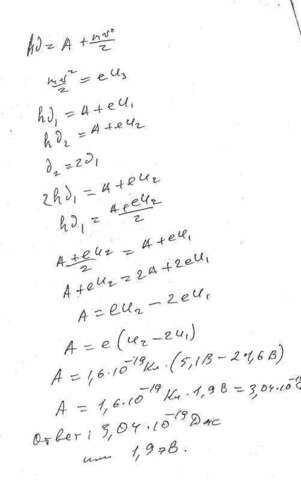 h∂ = A + mv²/2
mv²/2 = eu₃
h∂₁ = A + eu₁
h∂₂ = A + eu₂
∂₂ = 2∂₁
2h∂₁ = A + eu₂
h∂₁ = (A + eu₂)/2
(A + eu₂)/2 = A + eu₁
A + eu₂ = 2A + 2eu₁
A = eu₂ - 2eu₁
A = e(u₂ - 2u₁)
A = 1,6·10⁻¹⁹Кл·(5,1В - 2·1,6В)
A = 1,6·10⁻¹⁹Кл·1,9В = 3,04·10⁻¹⁹
Ответ: 3,04·10⁻¹⁹Дж
или 1,9эВ.